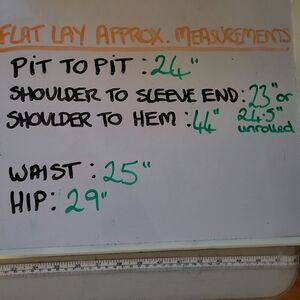 FLAT LAY APPROX. MEASUREMENTS
PiT TO PiT : 24"
SHOULDER TO SLEEVE END: 23" or
SHOULDER TO HEM : 44" 24.5"
unrolled
WAIST : 25"
HIP: 29"